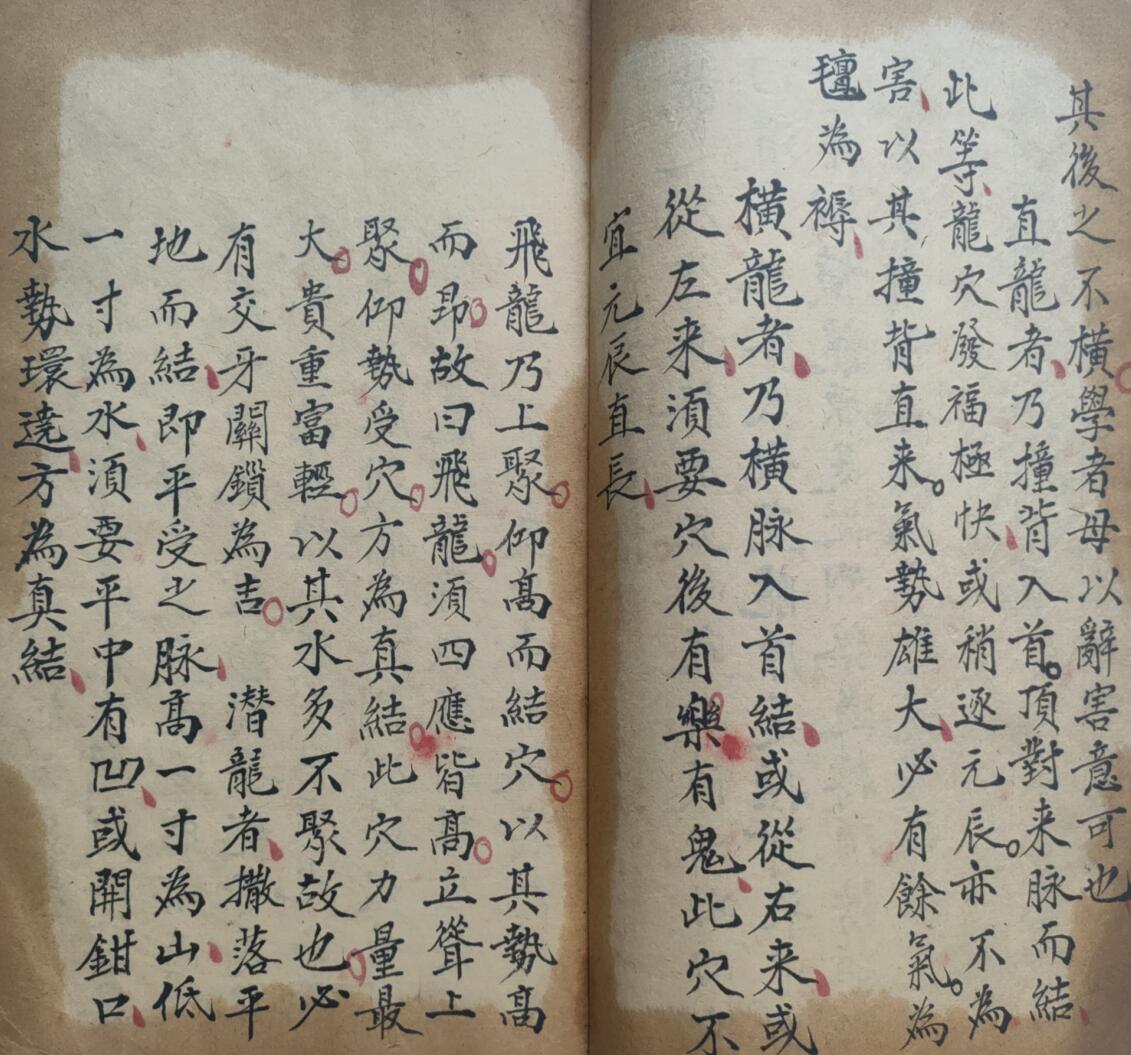 其後之不橫學者毋以辭害意可也
直龍者乃撞背入首頂對来脉而結
此等龍穴發福極快或稍逐元辰亦不為
害以其撞背直来氣勢雄大必有餘氣為
氊為褥
橫龍者乃橫脉入首結或從右来或
從左来須要穴後有樂有鬼此穴不
宜元辰直長
飛龍乃上聚仰髙而結穴以其勢髙
而昂故曰飛龍須四應皆髙立聳上
聚仰勢受穴方為真結此穴力量最
大貴重富輕以其水多不聚故也必
有交牙關鎖為吉 潛龍者撒落平
地而結即平受之脉髙一寸為山低
一寸為水須要平中有凹或開鉗口
水勢環遶方為真結